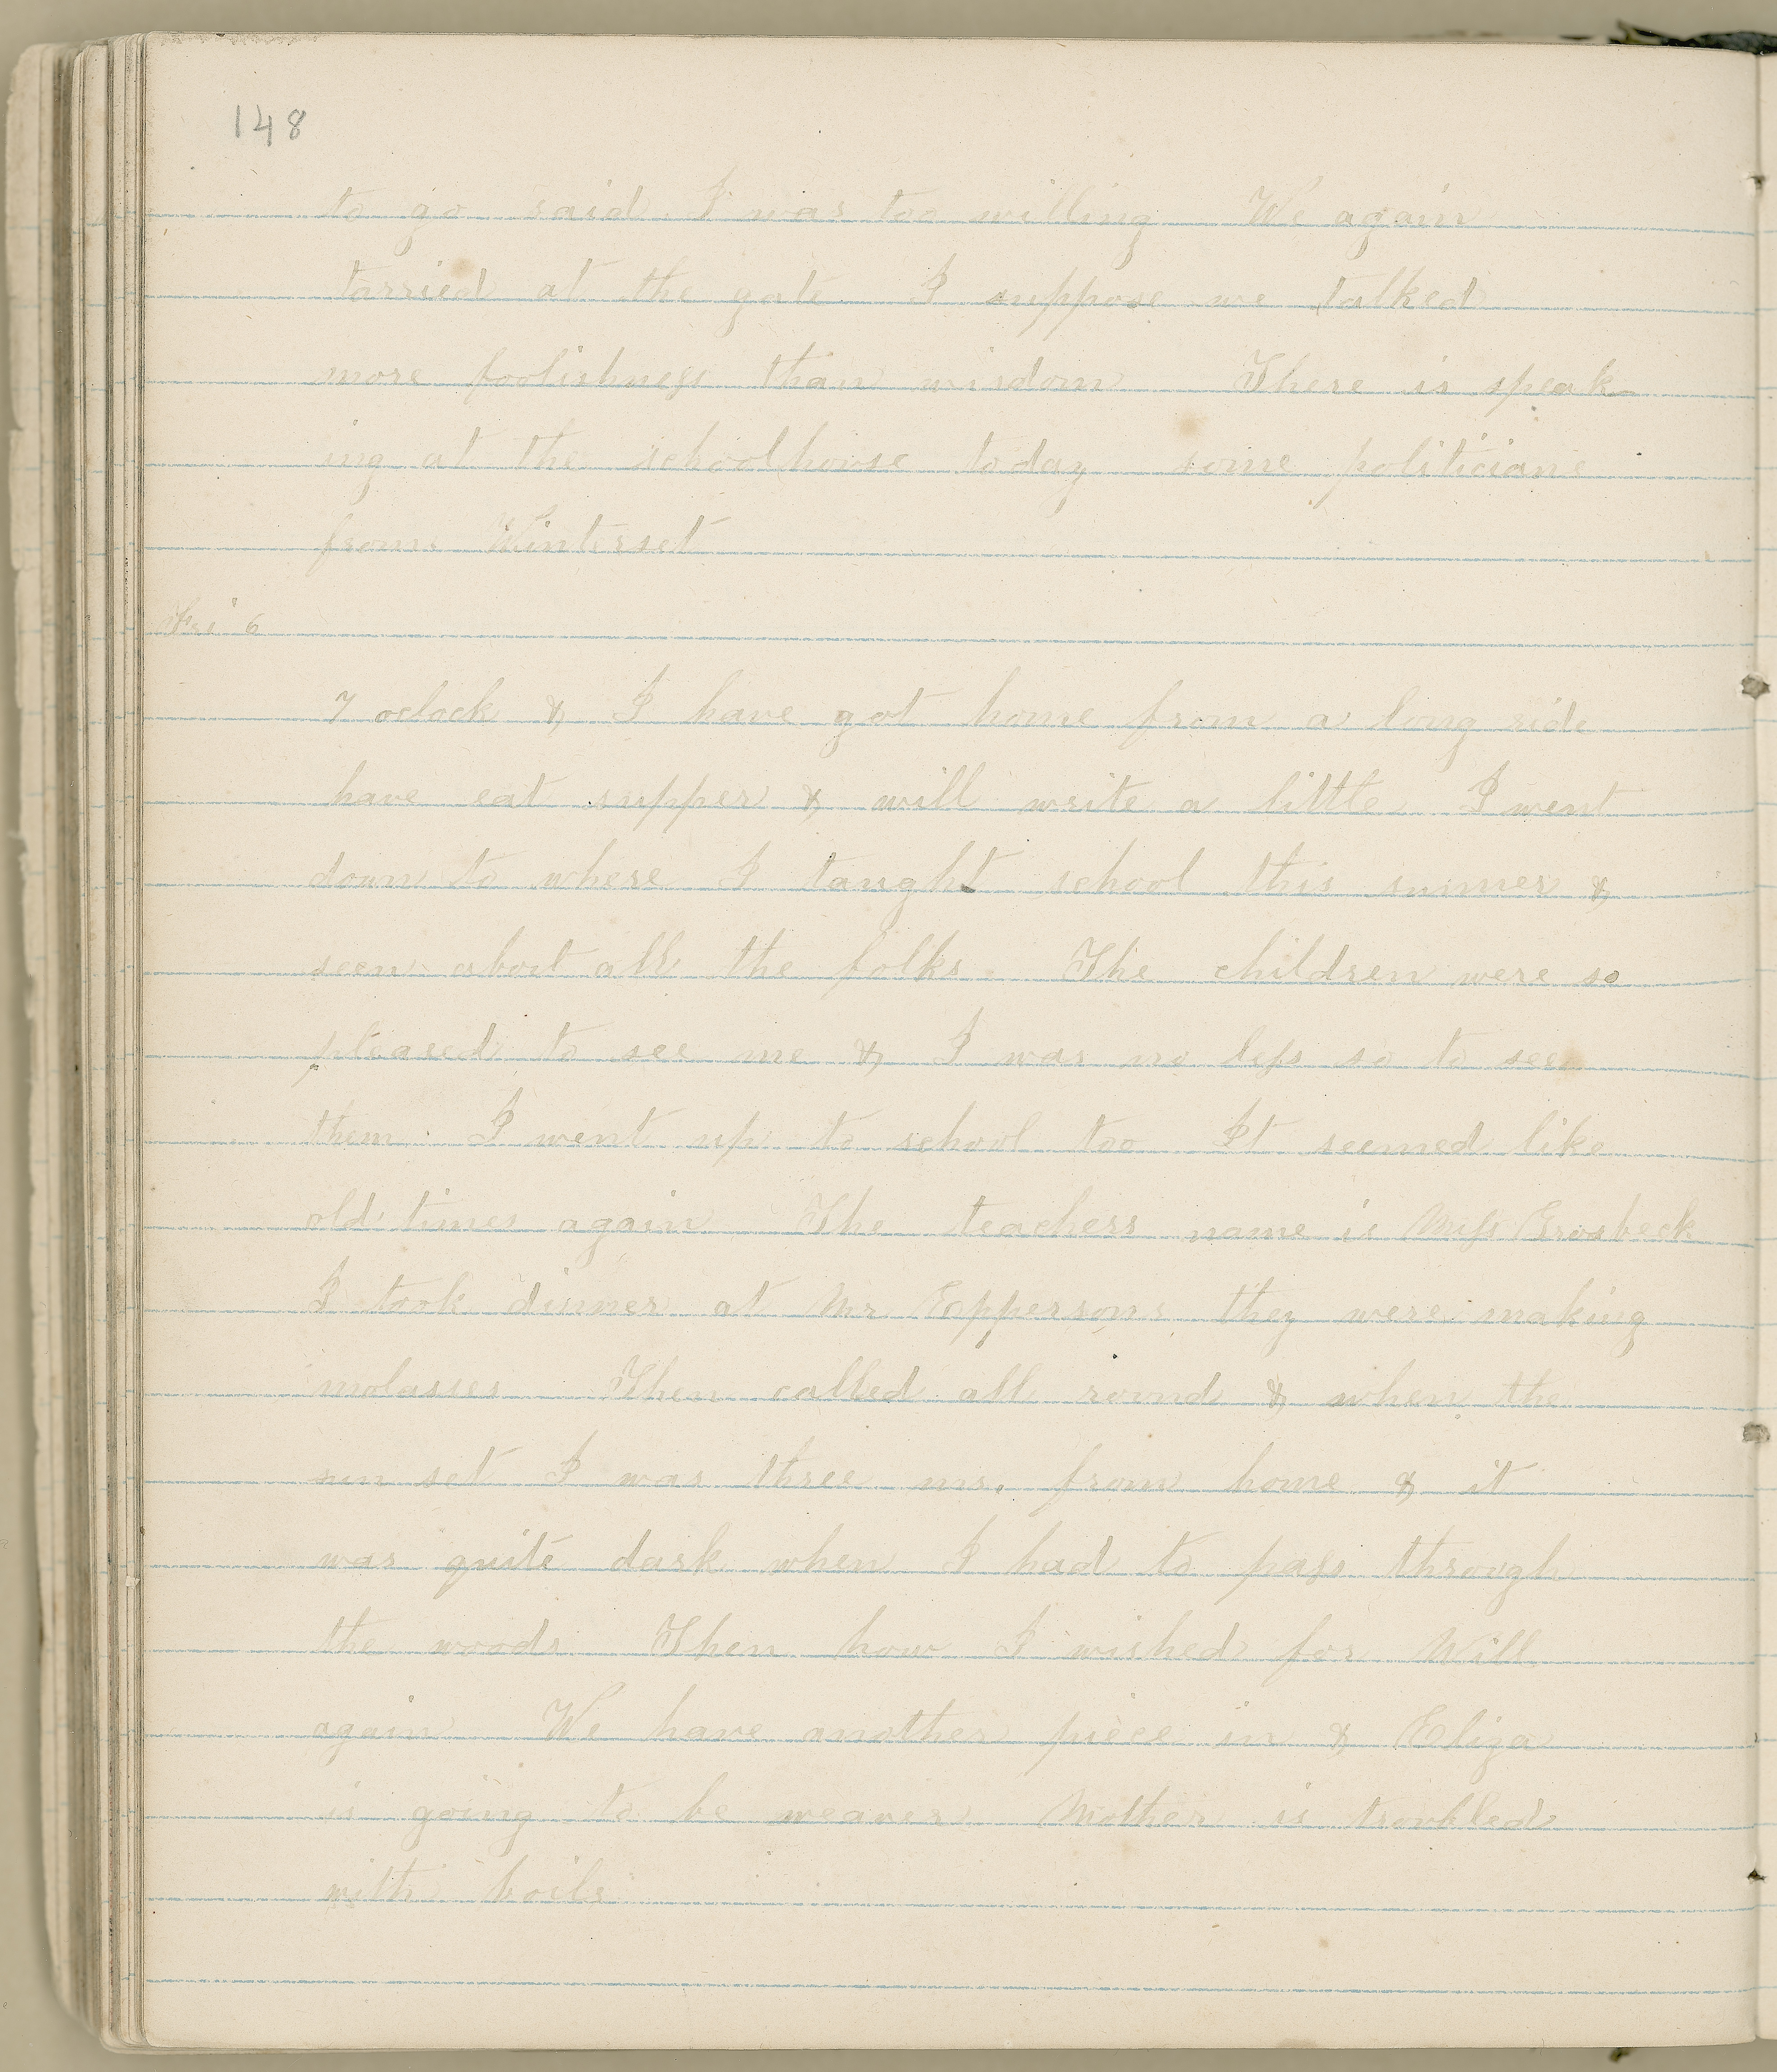 148
to go said I was too willing We again
tarried at the gate I suppose we talked
more foolishness than wisdom There is speak-
ing at the schoolhouse today some politicians
from Winterset
Fri 6
7 oclock & I have got home from a long ride
have eat supper & will write a little I went
down to where I taught school this summer &
seen about all the folks. The children were so
pleased to see me & I was no less so to see
them. I went up to school too It seemed like
old times again The teachers name is Miss
I took dinner at Mr Eppersons they were making
molasses Then called all round & when the
sun set I was three ms. from home & it
was quite dark when I had to pass through
the woods Then how I wished for Will
again We have another piece in & Eliza
is going to be weaver Mother is troubled
with boils